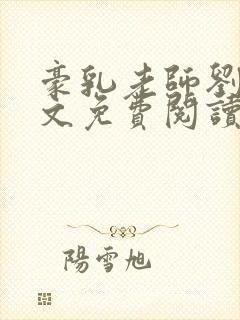 豪乳老師劉
文免費閱讀
陽雪旭